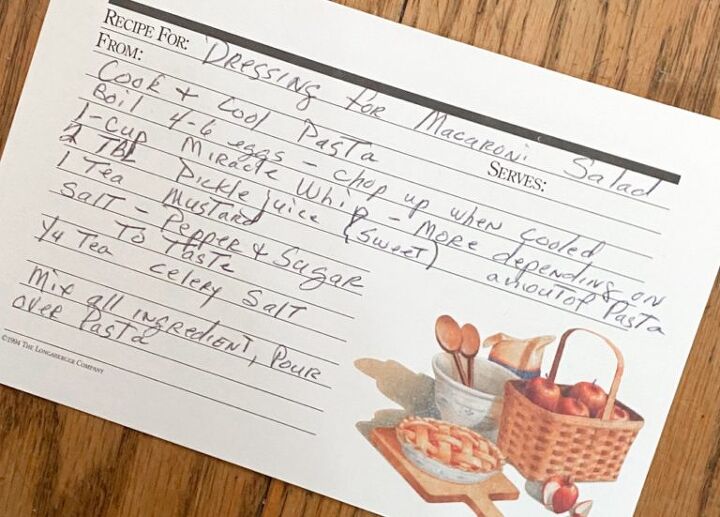 RECIPE FOR: DRESSING FOR MACARONI Salad
FROM:
SERVES:
Cook & Cool PASTA
Boil 4-6 eggs - chop up when cooled
1-cup Miracle Whip - More depending on amoutof Pasta
2 TBL Pickle juice (sweet)
1 Tea Mustard
Salt - Pepper & Sugar
To Taste
1/4 Tea celery Salt
Mix all ingredient, Pour
over Pasta
©1994 THE LONGABERGER COMPANY